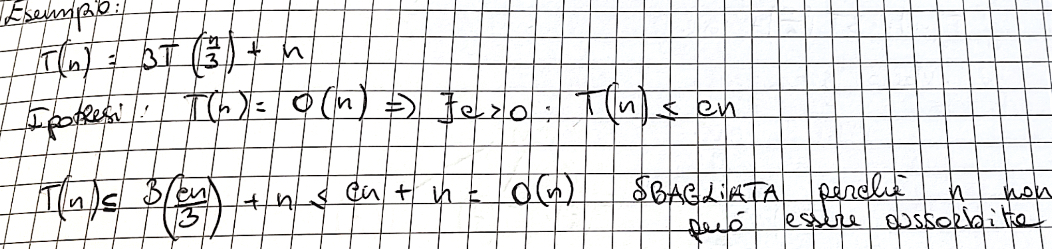 Esempio:
T(n) = 3T (n/3) + n
Ipotesi: T(n) = O(n) => ∃c>0 : T(n) ≤ cn
T(n) ≤ 3(cn/3) + n ≤ cn + n = O(n) SBAGLIATA perché n non
può essere assorbita